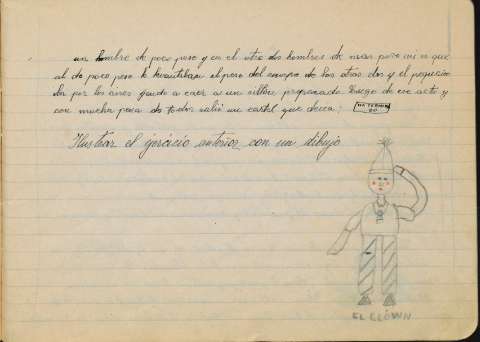 un hombre de poco peso y en el otro dos hombres de mas peso asi es que
al de poco peso le levantaban el peso del cuerpo de los otros dos y el pequeño
iba por los aires yendo a caer a un sillon preparado. Luego de ese acto y
con mucha pena de todos salió un cartel que decia: HA TERMINADO
Ilustrar el ejercicio anterior con un dibujo
EL CLÓWN